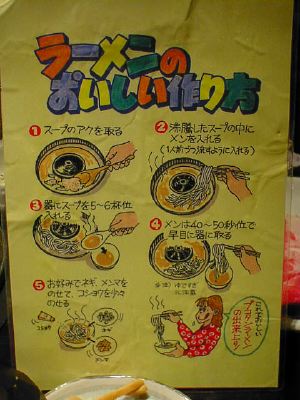 ラーメンの
おいしい作り方
1 スープのアクを取る
2 沸騰したスープの中に
メンを入れる
(1人前づつ
ように入れる)
3 器にスープを5~6杯位
入れる
4 メンは40~50秒位で
早目に器に取る
5 お好みでネギ、メンマを
のせて、コショウを少々
のせる
コショウ
ネギ
メンマ
注)ゆですぎ
に注意
これでおいしい
ラーメン
の出来上り!